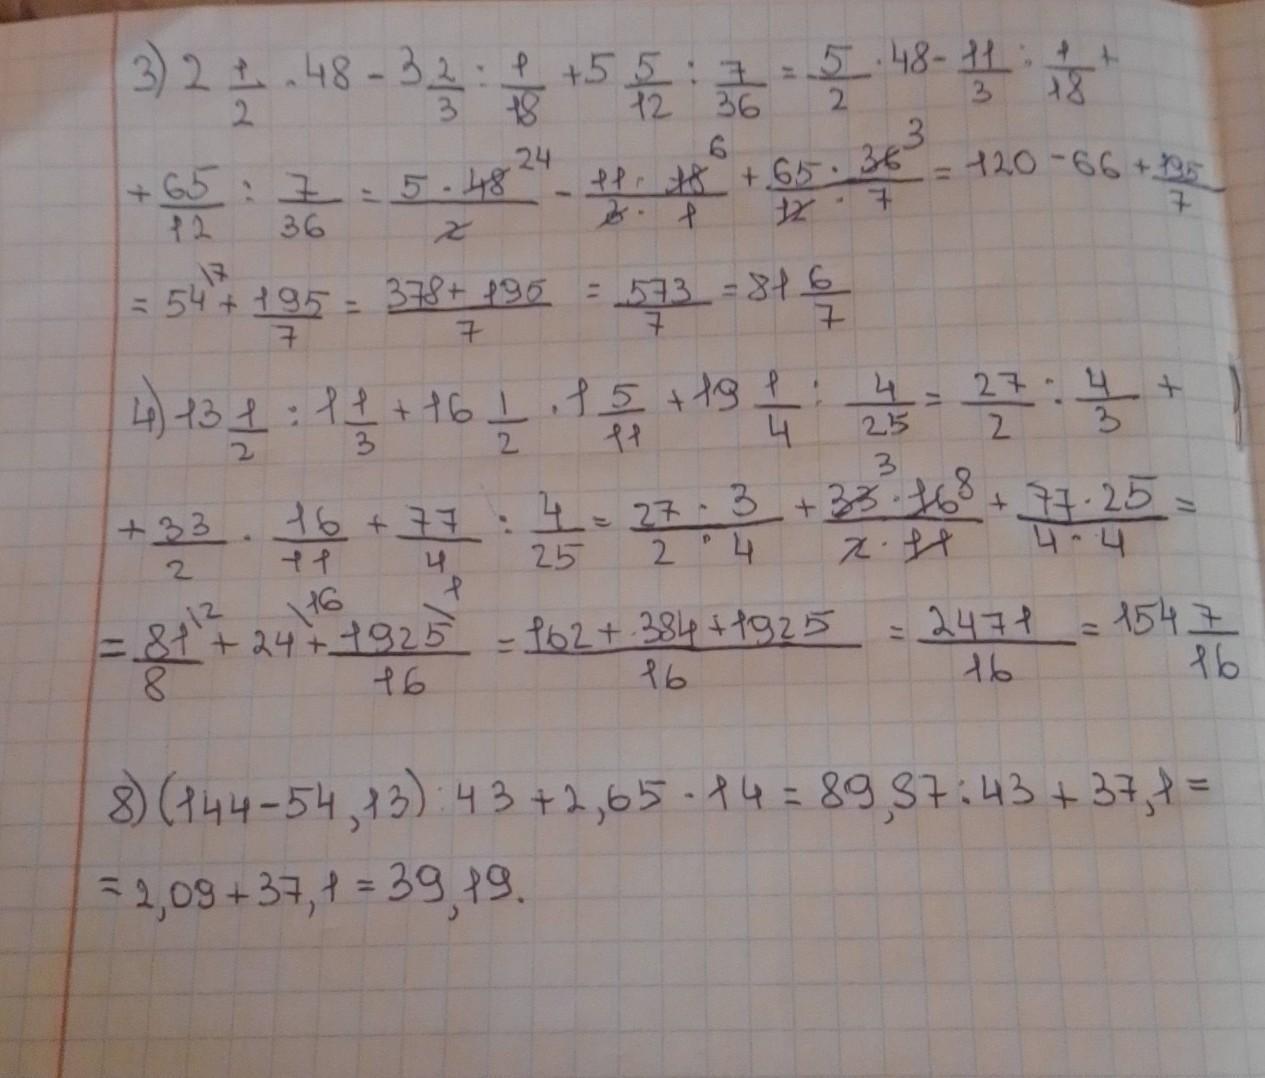 3) 2 1/2 · 48 - 3 2/3 : 1/18 + 5 5/12 : 7/36 = 5/2 · 48 - 11/3 : 1/18 +
+ 65/12 : 7/36 = 5 · 48 24 / 2 - 11 · 18 6 / 3 · 1 + 65 · 36 3 / 12 · 7 = 120 - 66 + 195/7
= 54 \7 + 195/7 = 378 + 195 / 7 = 573/7 = 81 6/7
4) 13 1/2 : 1 1/3 + 16 1/2 · 1 5/11 + 19 1/4 : 4/25 = 27/2 : 4/3 +
+ 33/2 · 16/11 + 77/4 : 4/25 = 27 · 3 / 2 · 4 + 33 3 · 16 8 / 2 · 11 + 77 · 25 / 4 · 4 =
= 81 \2 / 8 + 24 \16 + 1925 \1 / 16 = 162 + 384 + 1925 / 16 = 2471/16 = 154 7/16
8) (144 - 54,13) : 43 + 2,65 · 14 = 89,87 : 43 + 37,1 =
= 2,09 + 37,1 = 39,19.